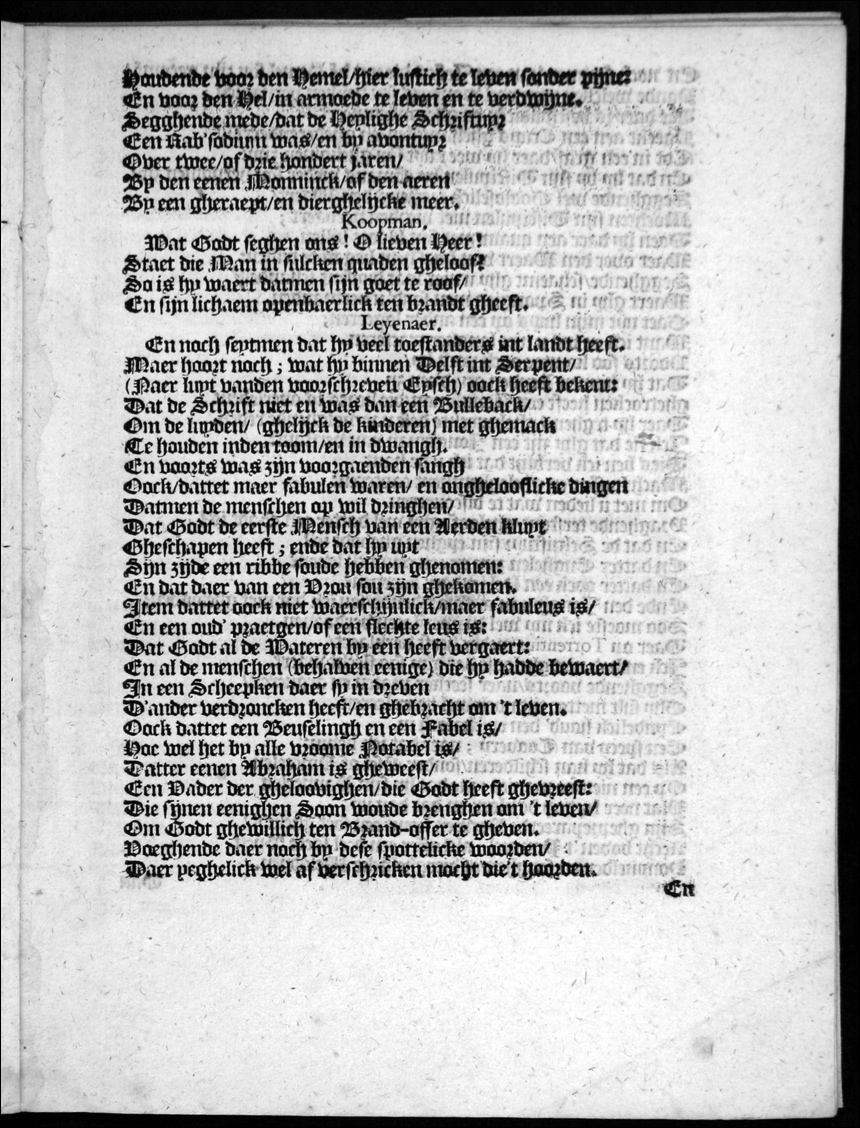 Houdende voor den Hemel/hier lustich te leven sonder pijne:
En voor den Hel/in armoede te leven en te verdwijne.
Segghende mede/dat de Heylighe Schriftuyr
Een Rab'sodium was/en by avontuyr
Over twee/of drie hondert jaren/
By den eenen Monninck/of den aeren
By een gheraept/en dierghelijcke meer.
Koopman.
Wat Godt seghen ons! O lieven Heer!
Staet die Man in sulcken quaden gheloof?
So is hy waert datmen sijn goet te roof/
En sijn lichaem openbaerlick ten brandt gheeft.
Leyenaer.
En noch seytmen dat hy veel toestanders int landt heeft.
Maer hoort noch; wat hy binnen Delft int Serpent/
(Naer luyt vanden voorschreven Eysch) oock heeft bekent:
Dat de Schrift niet en was dan een Bulleback/
Om de luyden/ (ghelijck de kinderen) met ghemack
Te houden inden toom/en in dwangh.
En voorts was zijn voorgaenden sangh
Oock/dattet maer fabulen waren/ en onghelooflicke dingen
Datmen de menschen op wil dringhen/
Dat Godt de eerste Mensch van een Aerden kluyt
Gheschapen heeft; ende dat hy uyt
Sijn zijde een ribbe soude hebben ghenomen:
En dat daer van een Vrou sou zijn ghekomen.
Item dattet oock niet waerschijnlick/maer fabuleus is/
En een oud' praetgen/of een slechte leus is:
Dat Godt al de Wateren by een heeft vergaert:
En al de menschen (behalven eenige) die hy hadde bewaert/
In een Scheepken daer sy in dreven
D'ander verdroncken heeft/en ghebracht om 't leven.
Oock dattet een Beuselingh en een Fabel is/
Hoe wel het by alle vroome Notabel is/
Datter eenen Abraham is gheweest/
Een Vader der gheloovighen/die Godt heeft ghevreest:
Die sijnen eenighen Soon woude brenghen om 't leven/
Om Godt ghewillich ten Brand-offer te gheven.
Voeghende daer noch by dese spottelicke woorden/
Daer yeghelick wel af verschricken mocht die't hoorden.
En